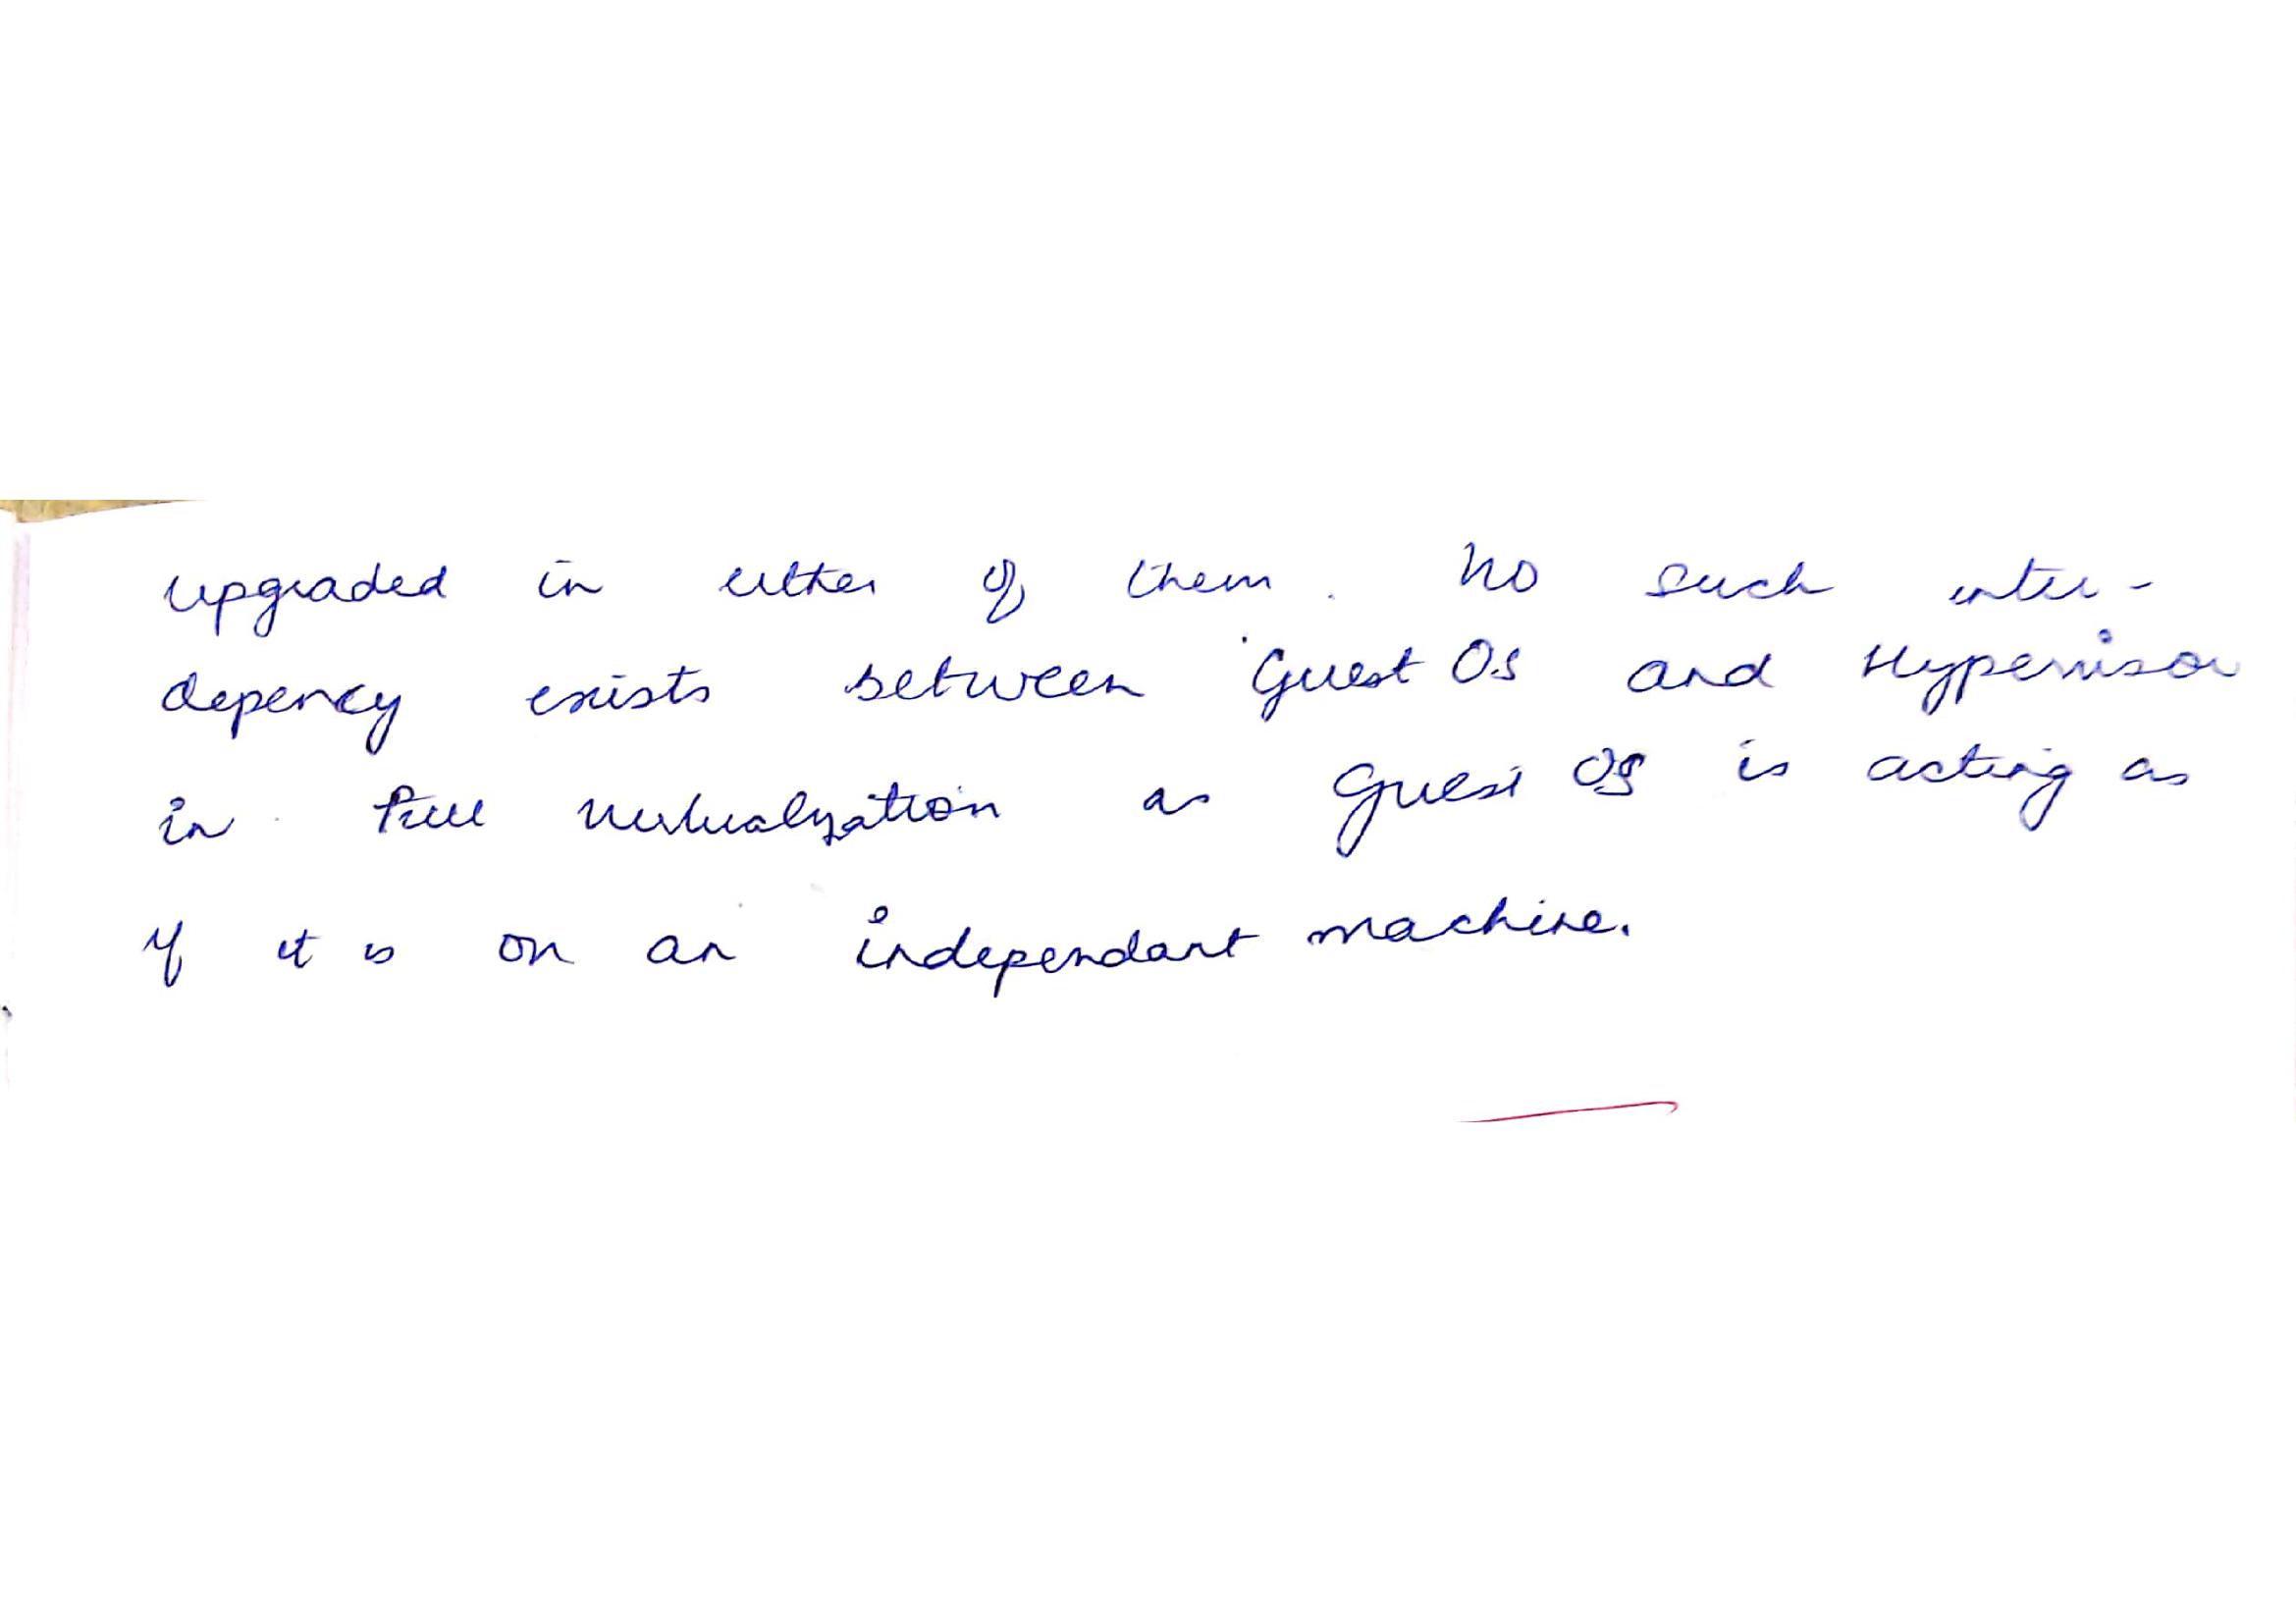 upgraded in either of them. No such inter-
depency exists between Guest OS and Hypervisor
in full virtualyzation as Guest OS is acting as
if it is on an independant machine.